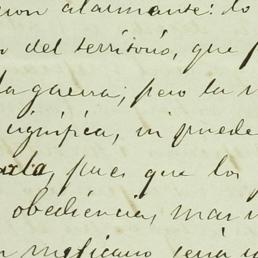 cion alarmante: lo
del territorio, que
la guerra; pero la
significa, ni puede
arla, pues que los
obediencia, mas
mejicano seria